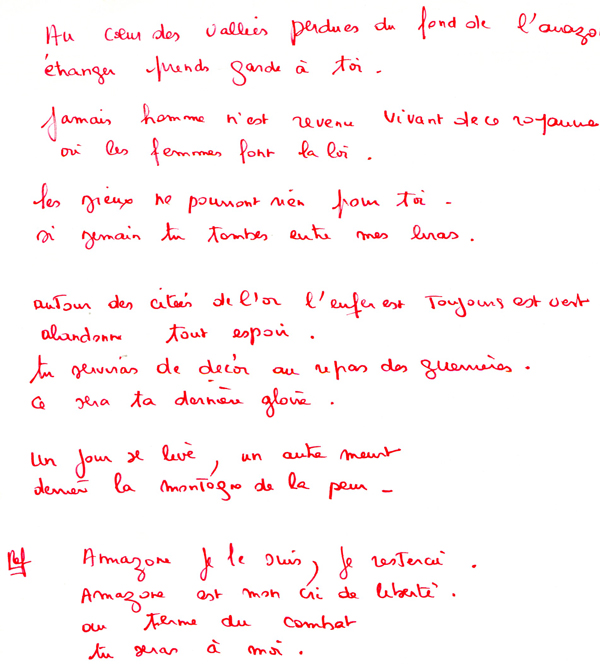 Au cœur des valliés perdues du fond de l'amazo
étranger prends garde à toi.
Jamais homme n'est revenu vivant de ce royaume
où les femmes font la loi.
les dieux ne pourront rien pour toi -
si demain tu tombes entre mes bras.
autour des citées de l'or l'enfer est toujours est vert
abandonne tout espoir.
tu serviras de decor au repas des guerrières.
ce sera ta dernière gloire.
un jour se lève, un autre meurt
derrière la montagne de la peur -
Ref Amazone je le suis, je resterai.
Amazone est mon cri de liberté.
au terme du combat
tu seras à moi.